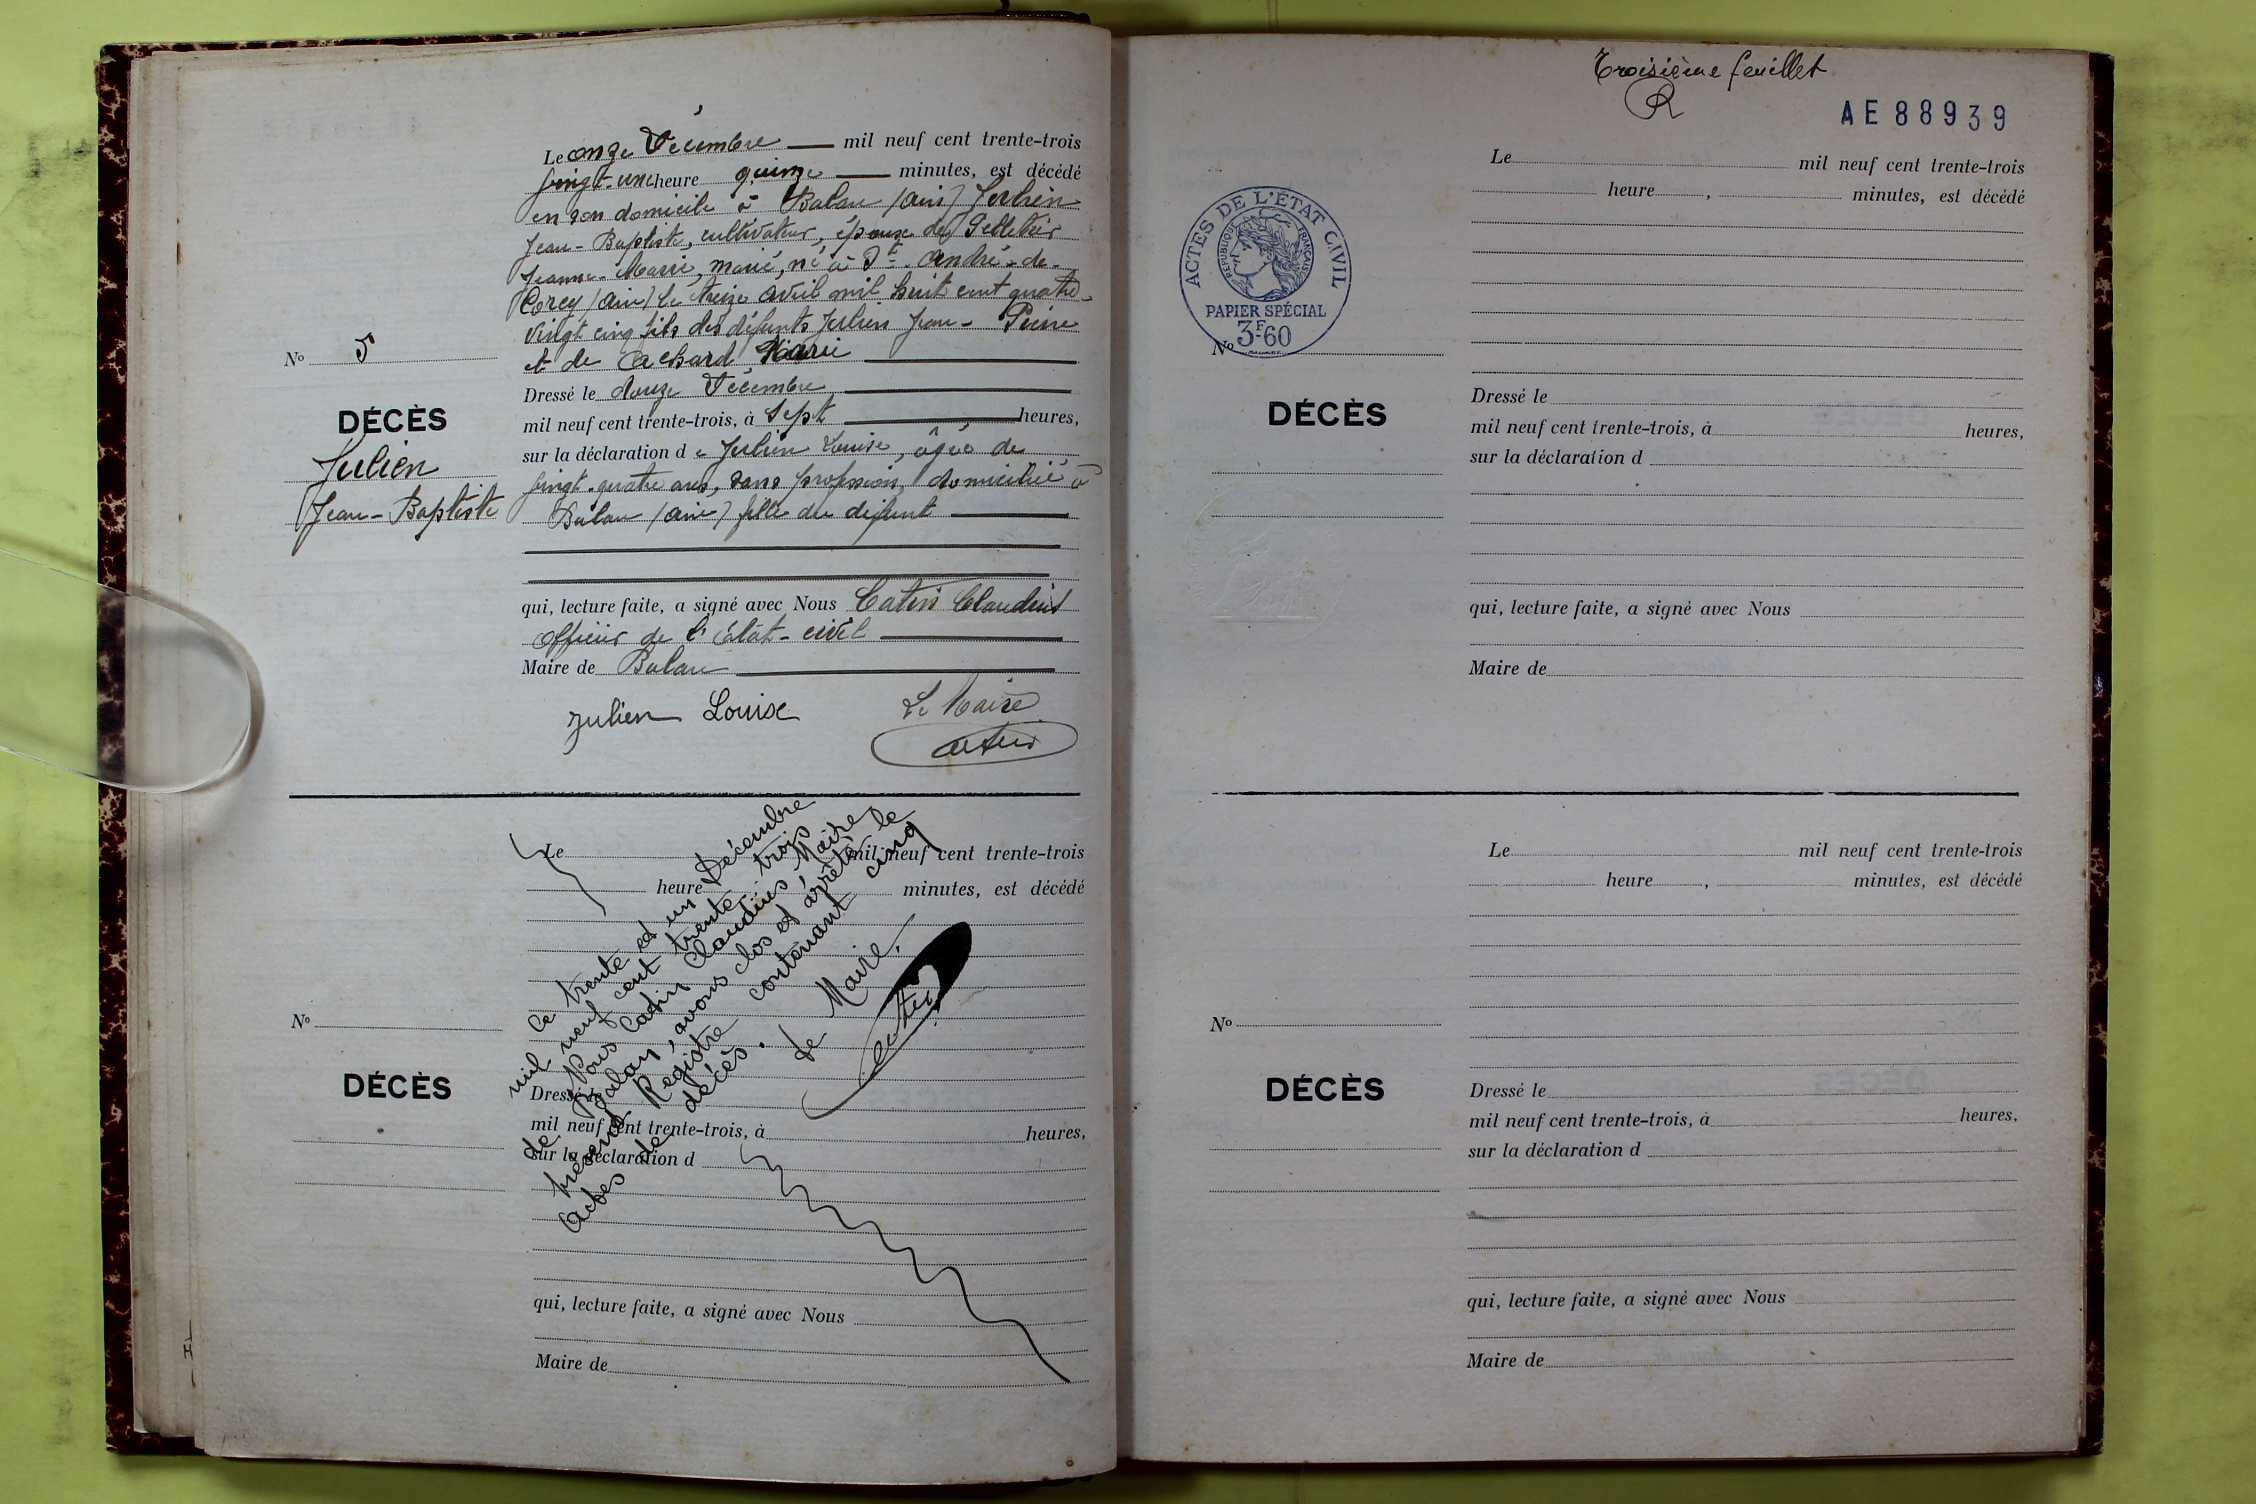 Le onze Décembre mil neuf cent trente-trois
vingt-une heure quinze minutes, est décédé
en son domicile à Balan (Ain) Julien
Jean-Baptiste, cultivateur, époux de Pelletier
Jeanne-Marie, marié, né à St-André-de-
Corcy (Ain) le treize avril mil huit cent quatre-
vingt cinq fils des défunts Julien Jean-
et de Achard Marie
Nº 5
Dressé le douze Décembre
DÉCÈS
mil neuf cent trente-trois, à Sept heures,
Julien
sur la déclaration de Julien Louise, âgée de
Jean-Baptiste
vingt-quatre ans, sans profession, domiciliée à
Balan (Ain) fille du défunt
qui, lecture faite, a signé avec Nous Catin Claudius
Officier de l'état-civil
Maire de Balan
Julien Louise
Le Maire
Catin
Le mil neuf cent trente-trois
heure minutes, est décédé
Nº
DÉCÈS
Dressé le
mil neuf cent trente-trois, à heures,
sur la déclaration d
qui, lecture faite, a signé avec Nous
Maire de
Ce trente et un Décembre
mil neuf cent trente trois
Nous Catin Claudius, Maire
de Balan, avons clos et arrêté le
présent Registre contenant cinq
actes de décès.
Le Maire,
Catin
Troisième feuillet
AE 88939
Le mil neuf cent trente-trois
heure , minutes, est décédé
ACTES DE L'ÉTAT CIVIL
RÉPUBLIQUE FRANÇAISE
PAPIER SPÉCIAL
3F60
Nº
DÉCÈS
Dressé le
mil neuf cent trente-trois, à heures,
sur la déclaration d
qui, lecture faite, a signé avec Nous
Maire de
Le mil neuf cent trente-trois
heure , minutes, est décédé
Nº
DÉCÈS
Dressé le
mil neuf cent trente-trois, à heures,
sur la déclaration d
qui, lecture faite, a signé avec Nous
Maire de